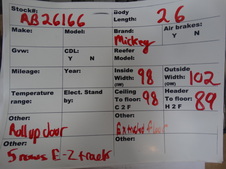 Stock#:
AB26166
Body Length: 26
Air brakes: Y N
Make:
Model:
Brand: Mickey
Gvw:
CDL: Y N
Reefer Model:
Mileage:
Year:
Inside Width: 98
Outside Width: (OW) 102
Temperature range:
Elect. Stand by:
Ceiling To floor: 98 C 2 F
Header To floor: 89 H 2 F
Other: Roll up door
Other: Extruded floor
Other: 5 rows E-Z track